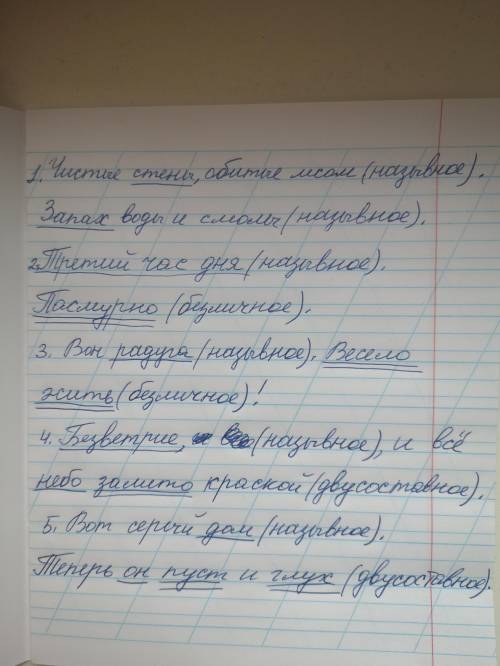 1. Чистые стены, обитые мсом (назывное).
Запах воды и смолы (назывное).
2. Третий час дня (назывное).
Пасмурно (безличное).
3. Вон радуга (назывное). Весело
жить (безличное)!
4. Безветрие, (назывное), и всё
небо залито краской (двусоставное).
5. Вот серый дом (назывное).
Теперь он пуст и глух (двусоставное).